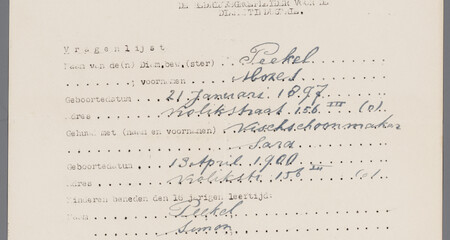 V r a g e n l i j s t
Naam van de(n) Diam.bew.(ster) Peekel
; voornamen Mozes
Geboortedatum 21 Januari 1897
Adres Wolikstraat 156 III (o).
Gehuwd met (naam en voornamen) Vischschoonmaker
Sara
Geboortedatum 13 April 1900
Adres 156 III (o).
Kinderen beneden den 16 jarigen leeftijd:
Naam Peekel
Simon